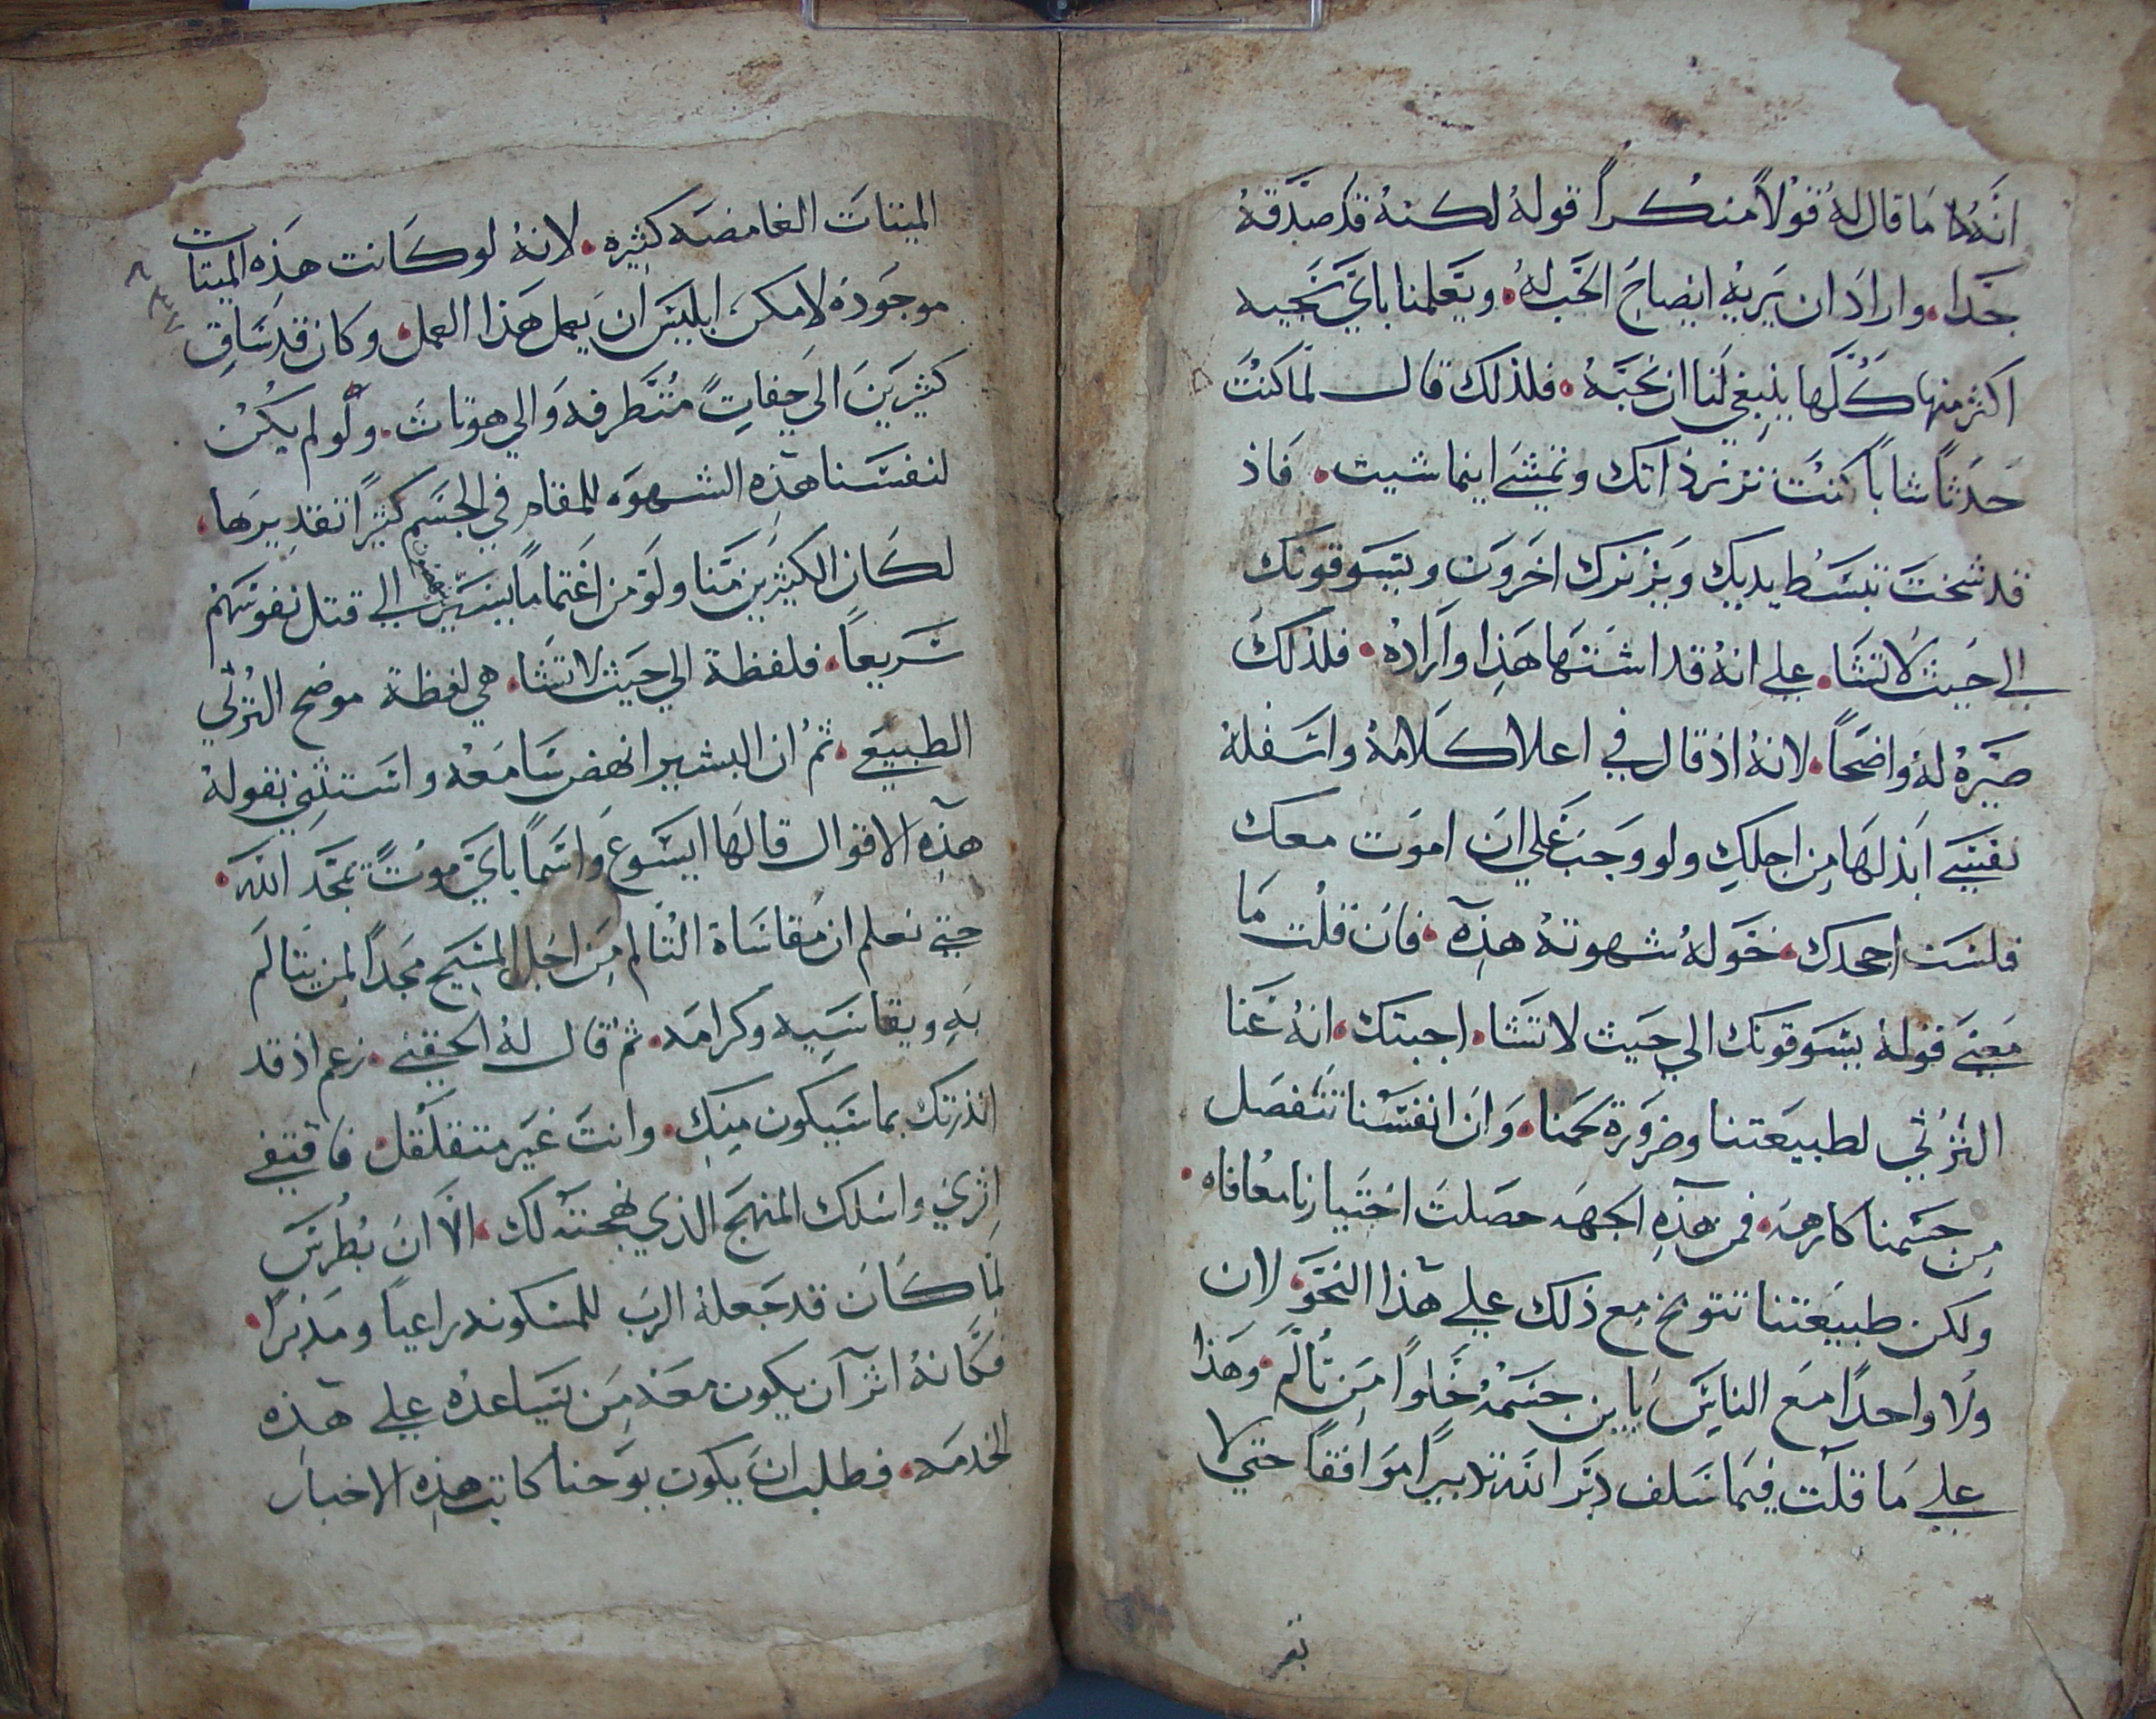 انه ما قال له قولاً منكراً قوله لكنه قد صدقه
جدا. واراد ان يريه ايضاح الحب له. ويعلمنا باي سجيه
اكثر منها كلها ينبغي لنا ان نحبه. فلذلك قال لما كنت
حدثاً شاباً كنت تزنر ذاتك وتمشي اينما شيت. فاذ
قد شخت تبسط يديك ويزنرك اخرون ويسوقونك
الي حيث لا تشا. علي انه قد اشتها هذا واراده. فلذلك
صيره له واضحاً. لانه اذ قال في اعلا كلامه واسفله
نفسي ابذلها من اجلك ولو وجب علي ان اموت معك
فلست اجحدك. خوله شهوته هذه. فان قلت ما
معني قوله يسوقونك الي حيث لا تشا. اجبتك. انه عنا
الترثي لطبيعتنا وضرورة لحمنا. وان انفسنا تنفصل
من جسمنا كارهه. فمن هذه الجهه حصلت اختيارنا معافاه.
ولكن طبيعتنا تتوبخ مع ذلك علي هذا النحو. لان
ولا واحداً مع الناس يباين جسمه خلواً من تألم. وهذا
علي ما قلت فيما سلف دبر الله تدبيراً موافقاً حتي لا
الميتات الغامضه كثيره. لانه لو كانت هذه الميتات
موجوده لامكن ابليس ان يعمل هذا العمل. وكان قد ساق
كثيرين الي جفات متطرفه والي هوتات. ولو لم يكن
لنفسنا هذه الشهوه للمقام في الجسم كثيراً تقديرها.
لكان الكثيرين منا ولو من اغتماماً يسير الي قتل نفوسهم
سريعاً. فلفظة الي حيث لا تشا. هي لفظة موضح الترثي
الطبيعي. ثم ان البشير انهض سامعه واستثني بقوله
هذه الاقوال قالها ايسوع واسماً باي موت يمجد الله.
حتي نعلم ان مقاساة التالم من اجل المسيح مجداً لمن يتالم
به ويقاسيه وكرامه. ثم قال له الحقني. زعم اذ قد
انذرتك بما سيكون منك. وانت غير متقلقل. فاقتفي
اثري واسلك المنهج الذي نهجته لك. الا ان بطرس
لما كان قد جعله الرب للمسكونه راعياً ومدبراً.
فكانه اثر ان يكون معه من يساعده علي هذه
الخدمه. فطلب ان يكون يوحنا كاتب هذه الاخبار